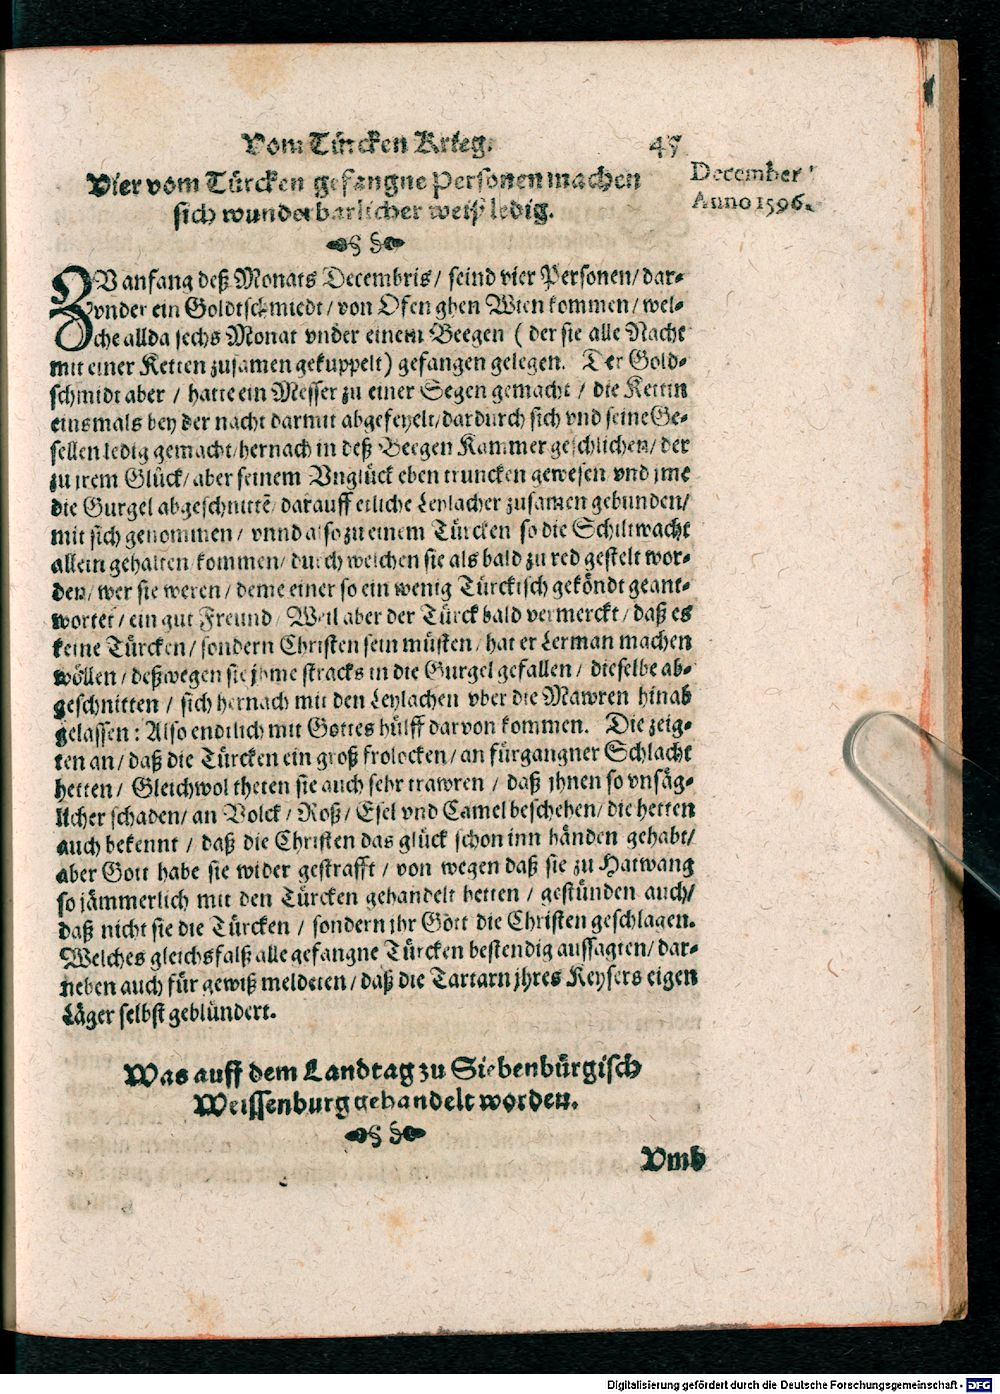 Vom Türcken Krieg. 45
Vier vom Türcken gefangne Personen machen
sich wunderbarlicher weiß ledig.
December
Anno 1596.
ZV anfang deß Monats Decembris/ seind vier Personen/ dar-
vnder ein Goldtschmiedt/ von Ofen ghen Wien kommen/ wel-
che allda sechs Monat vnder einem Beegen ( der sie alle Nacht
mit einer Ketten zusamen gekuppelt) gefangen gelegen. Der Gold-
schmidt aber / hatte ein Messer zu einer Segen gemacht / die Kettin
einsmals bey der nacht darmit abgefeyelt/ dardurch sich vnd seine Ge-
sellen ledig gemacht/ hernach in deß Beegen Kammer geschlichen/ der
zu jrem Glück/ aber seinem Vnglück eben truncken gewesen vnd jme
die Gurgel abgeschnittē/ darauff etliche Leylacher zusamen gebunden/
mit sich genommen / vnnd also zu einem Türcken so die Schiltwacht
allein gehalten/ kommen/ durch welchen sie als bald zu red gestelt wor-
den/ wer sie weren/ deme einer so ein wenig Türckisch geköndt geant-
wortet/ ein gut Freund/ Weil aber der Türck bald vermerckt/ daß es
keine Türcken/ sondern Christen sein müsten/ hat er Lerman machen
wöllen/ deßwegen sie jhme stracks in die Gurgel gefallen/ dieselbe ab-
geschnitten / sich hernach mit den Leylachen vber die Mawren hinab
gelassen: Also endtlich mit Gottes hülff darvon kommen. Die zeig-
ten an/ daß die Türcken ein groß frolocken/ an fürgangner Schlacht
hetten/ Gleichwol theten sie auch sehr trawren / daß jhnen so vnsäg-
licher schaden/ an Volck/ Roß/ Esel vnd Camel beschehen/ die hetten
auch bekennt / daß die Christen das glück schon inn händen gehabt/
aber Gott habe sie wider gestrafft / von wegen daß sie zu Hatwang
so jämmerlich mit den Türcken gehandelt hetten / gestünden auch/
daß nicht sie die Türcken / sondern jhr Gott die Christen geschlagen.
Welches gleichsfalß alle gefangne Türcken bestendig aussagten/ dar-
neben auch für gewiß meldeten/ daß die Tartarn jhres Keysers eigen
Läger selbst geblündert.
Was auff dem Landtag zu Siebenbürgisch
Weissenburg gehandelt worden.
Vmb
Digitalisierung gefördert durch die Deutsche Forschungsgemeinschaft - DFG